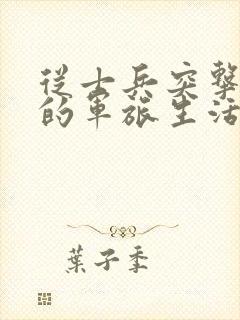 從士兵突擊
的軍旅生活
葉子季